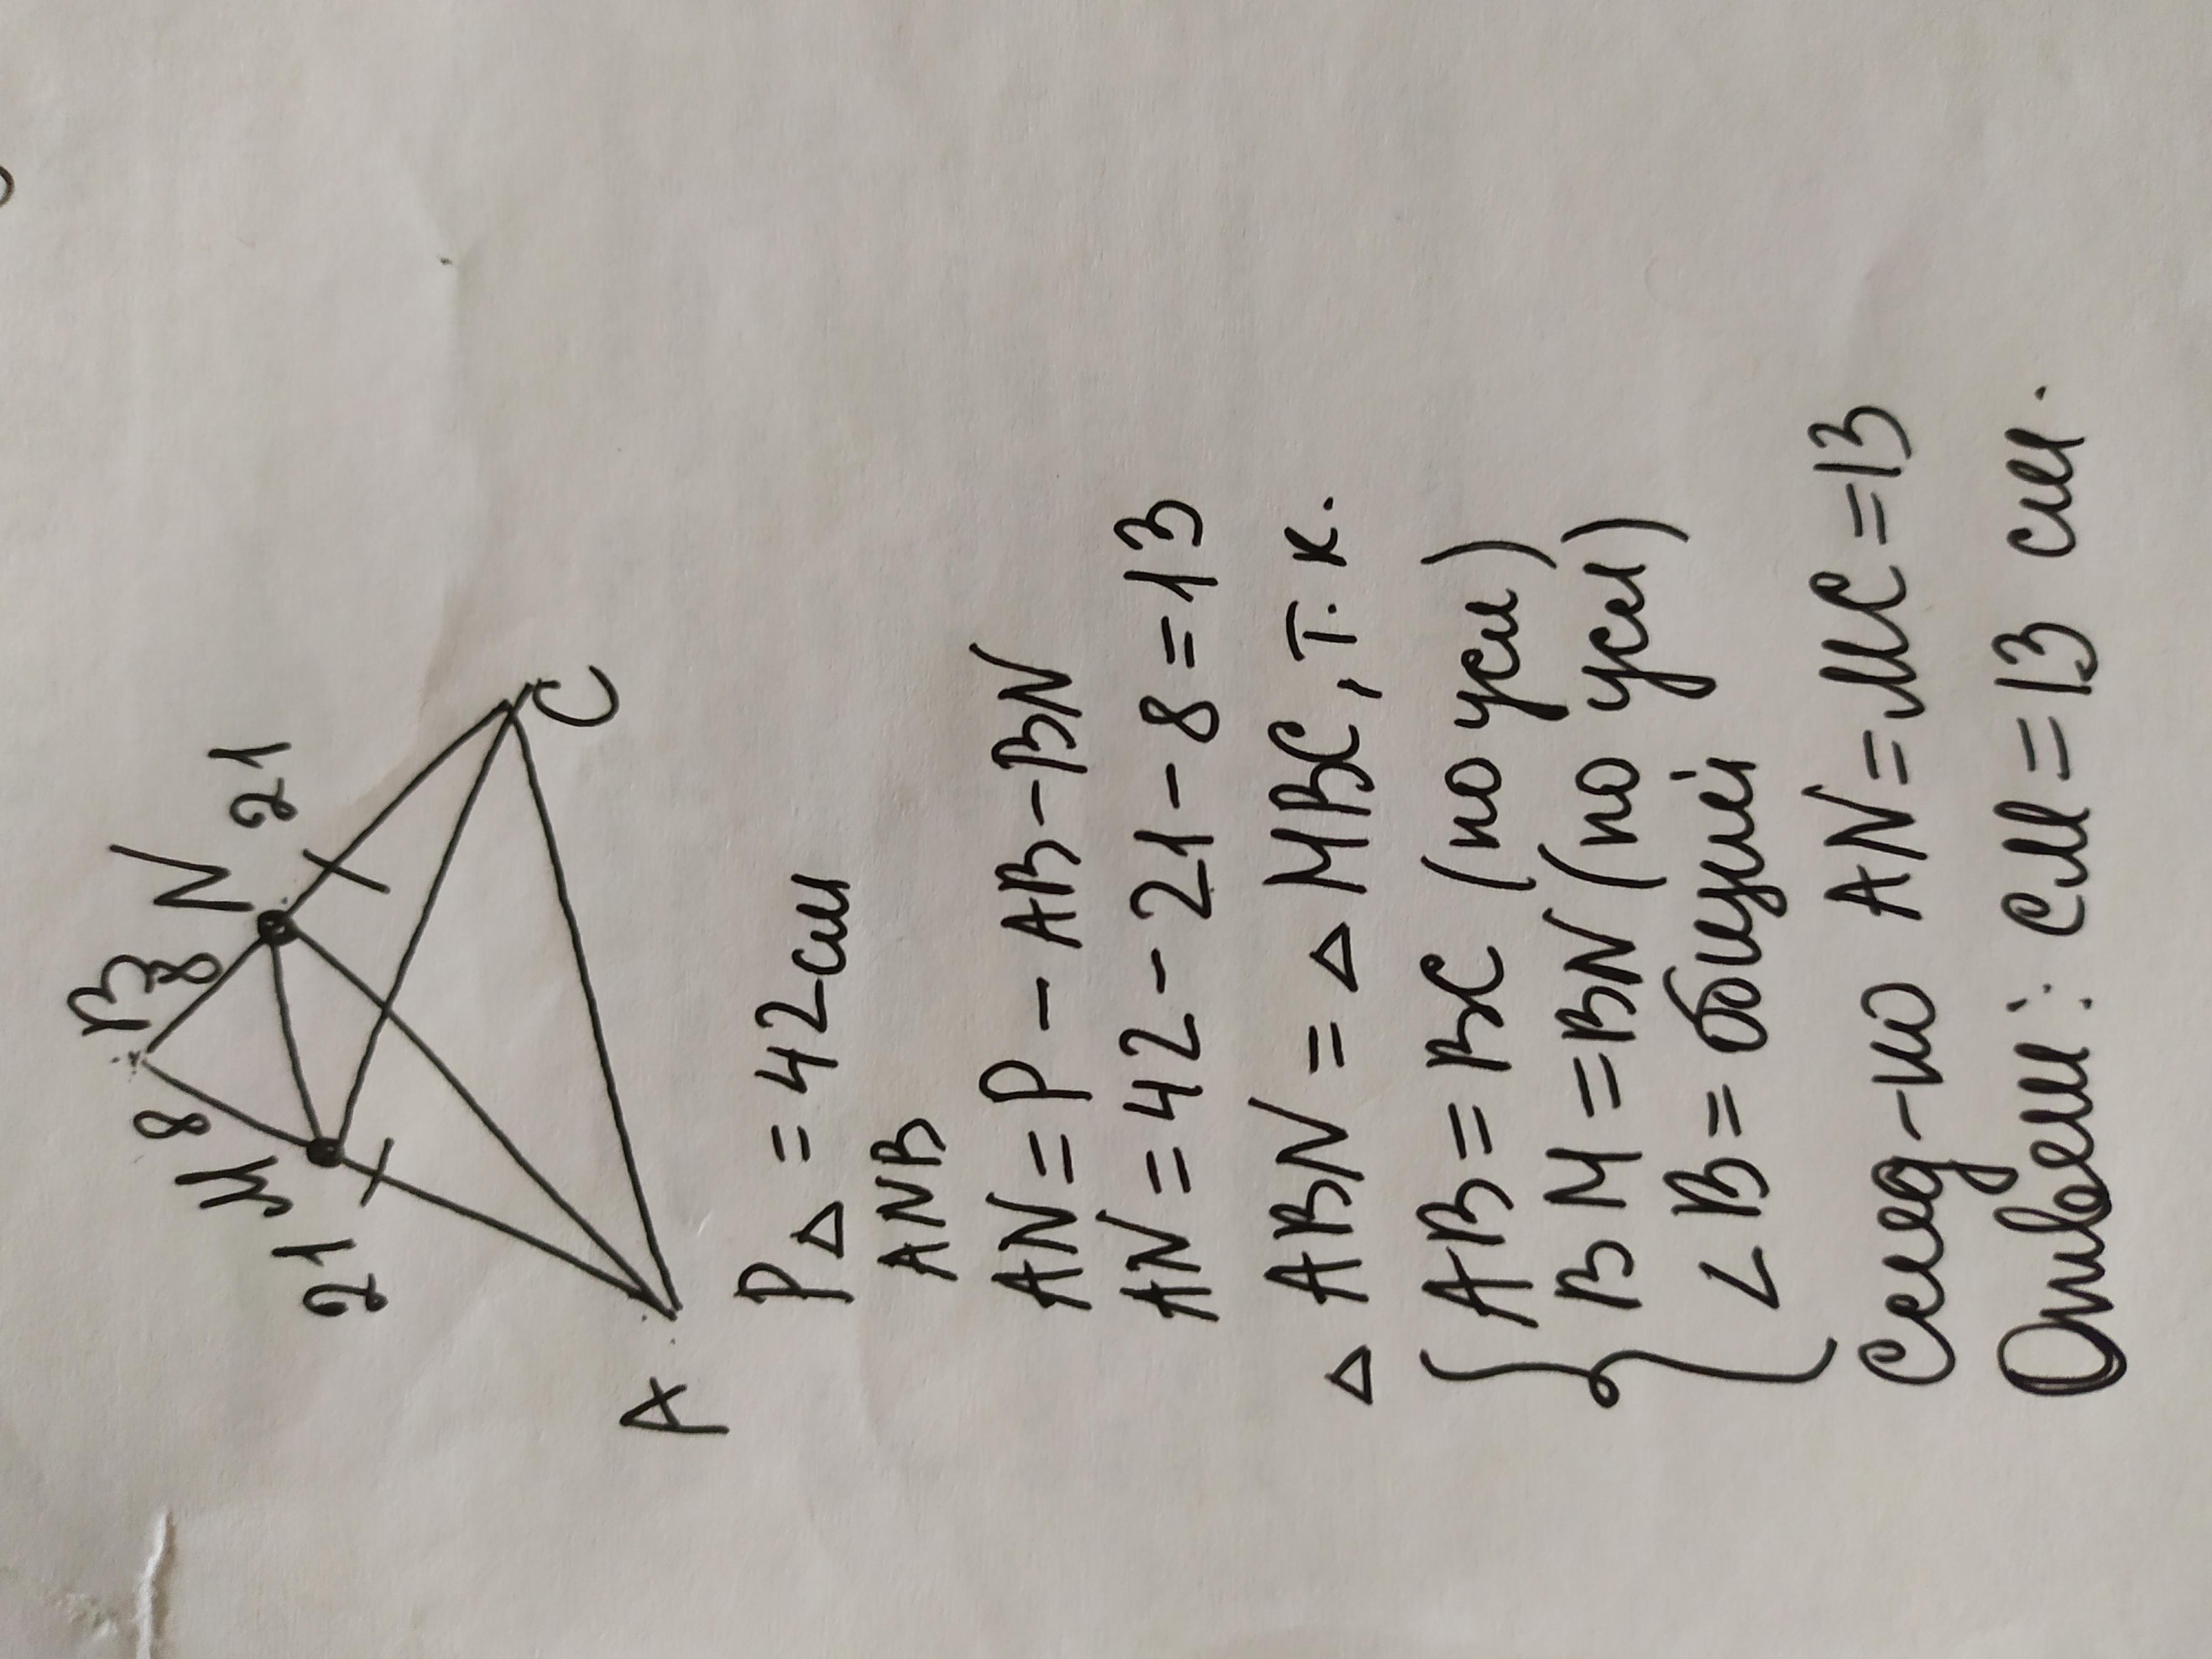 B
M 8 8 N
21 21
A C
P△ = 42 см
ANB
AN = P - AB - BN
AN = 42 - 21 - 8 = 13
△ ABN = △ MBC, т.к.
AB = BC (по усл)
BM = BN (по усл)
∠B = общий
След-но AN = MC = 13
Ответ: CM = 13 см.